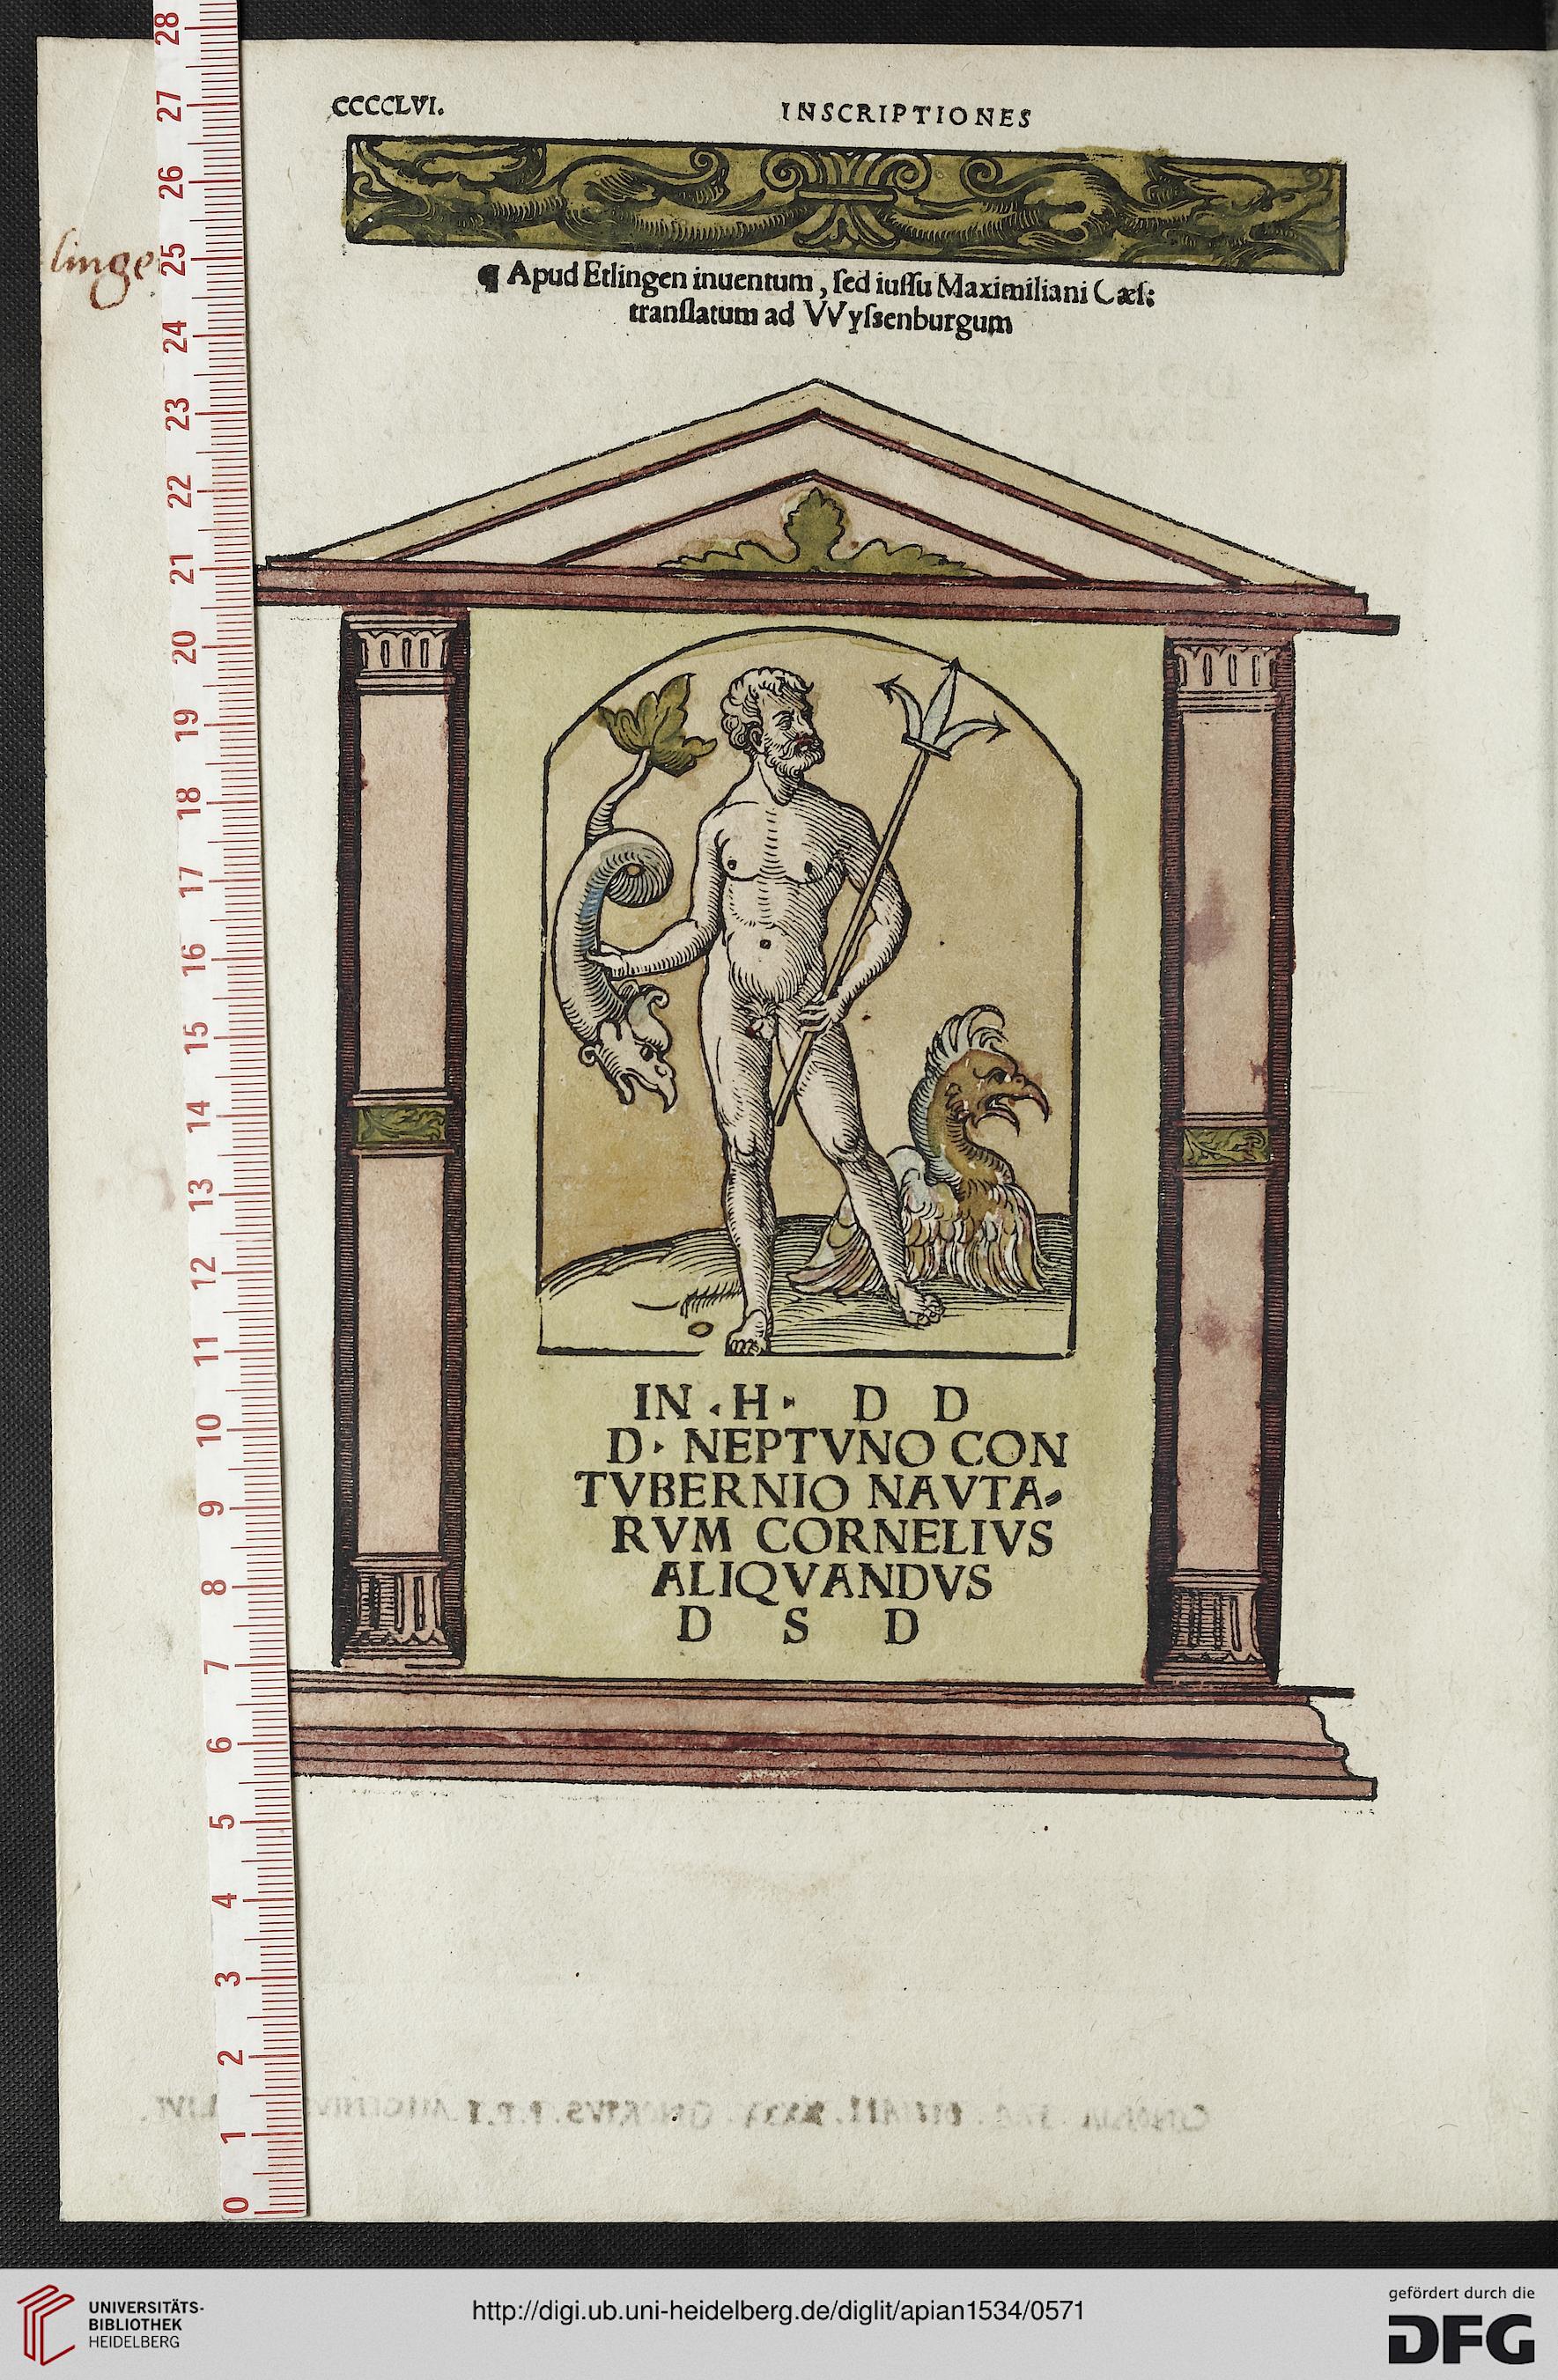 CCCCLVI.
INSCRIPTIONES
linge
¶ Apud Etlingen inuentum, ſed iuſſu Maximiliani Cæſ:
tranſlatum ad VVyſsenburgum
IN · H · D D
D · NEPTVNO CON
TVBERNIO NAVTA⸗
RVM CORNELIVS
ALIQVANDVS
D S D
28
27
26
25
24
23
22
21
20
19
18
17
16
15
14
13
12
11
10
9
8
7
6
5
4
3
2
1
0
UNIVERSITÄTS-
BIBLIOTHEK
HEIDELBERG
http://digi.ub.uni-heidelberg.de/diglit/apian1534/0571
gefördert durch die
DFG